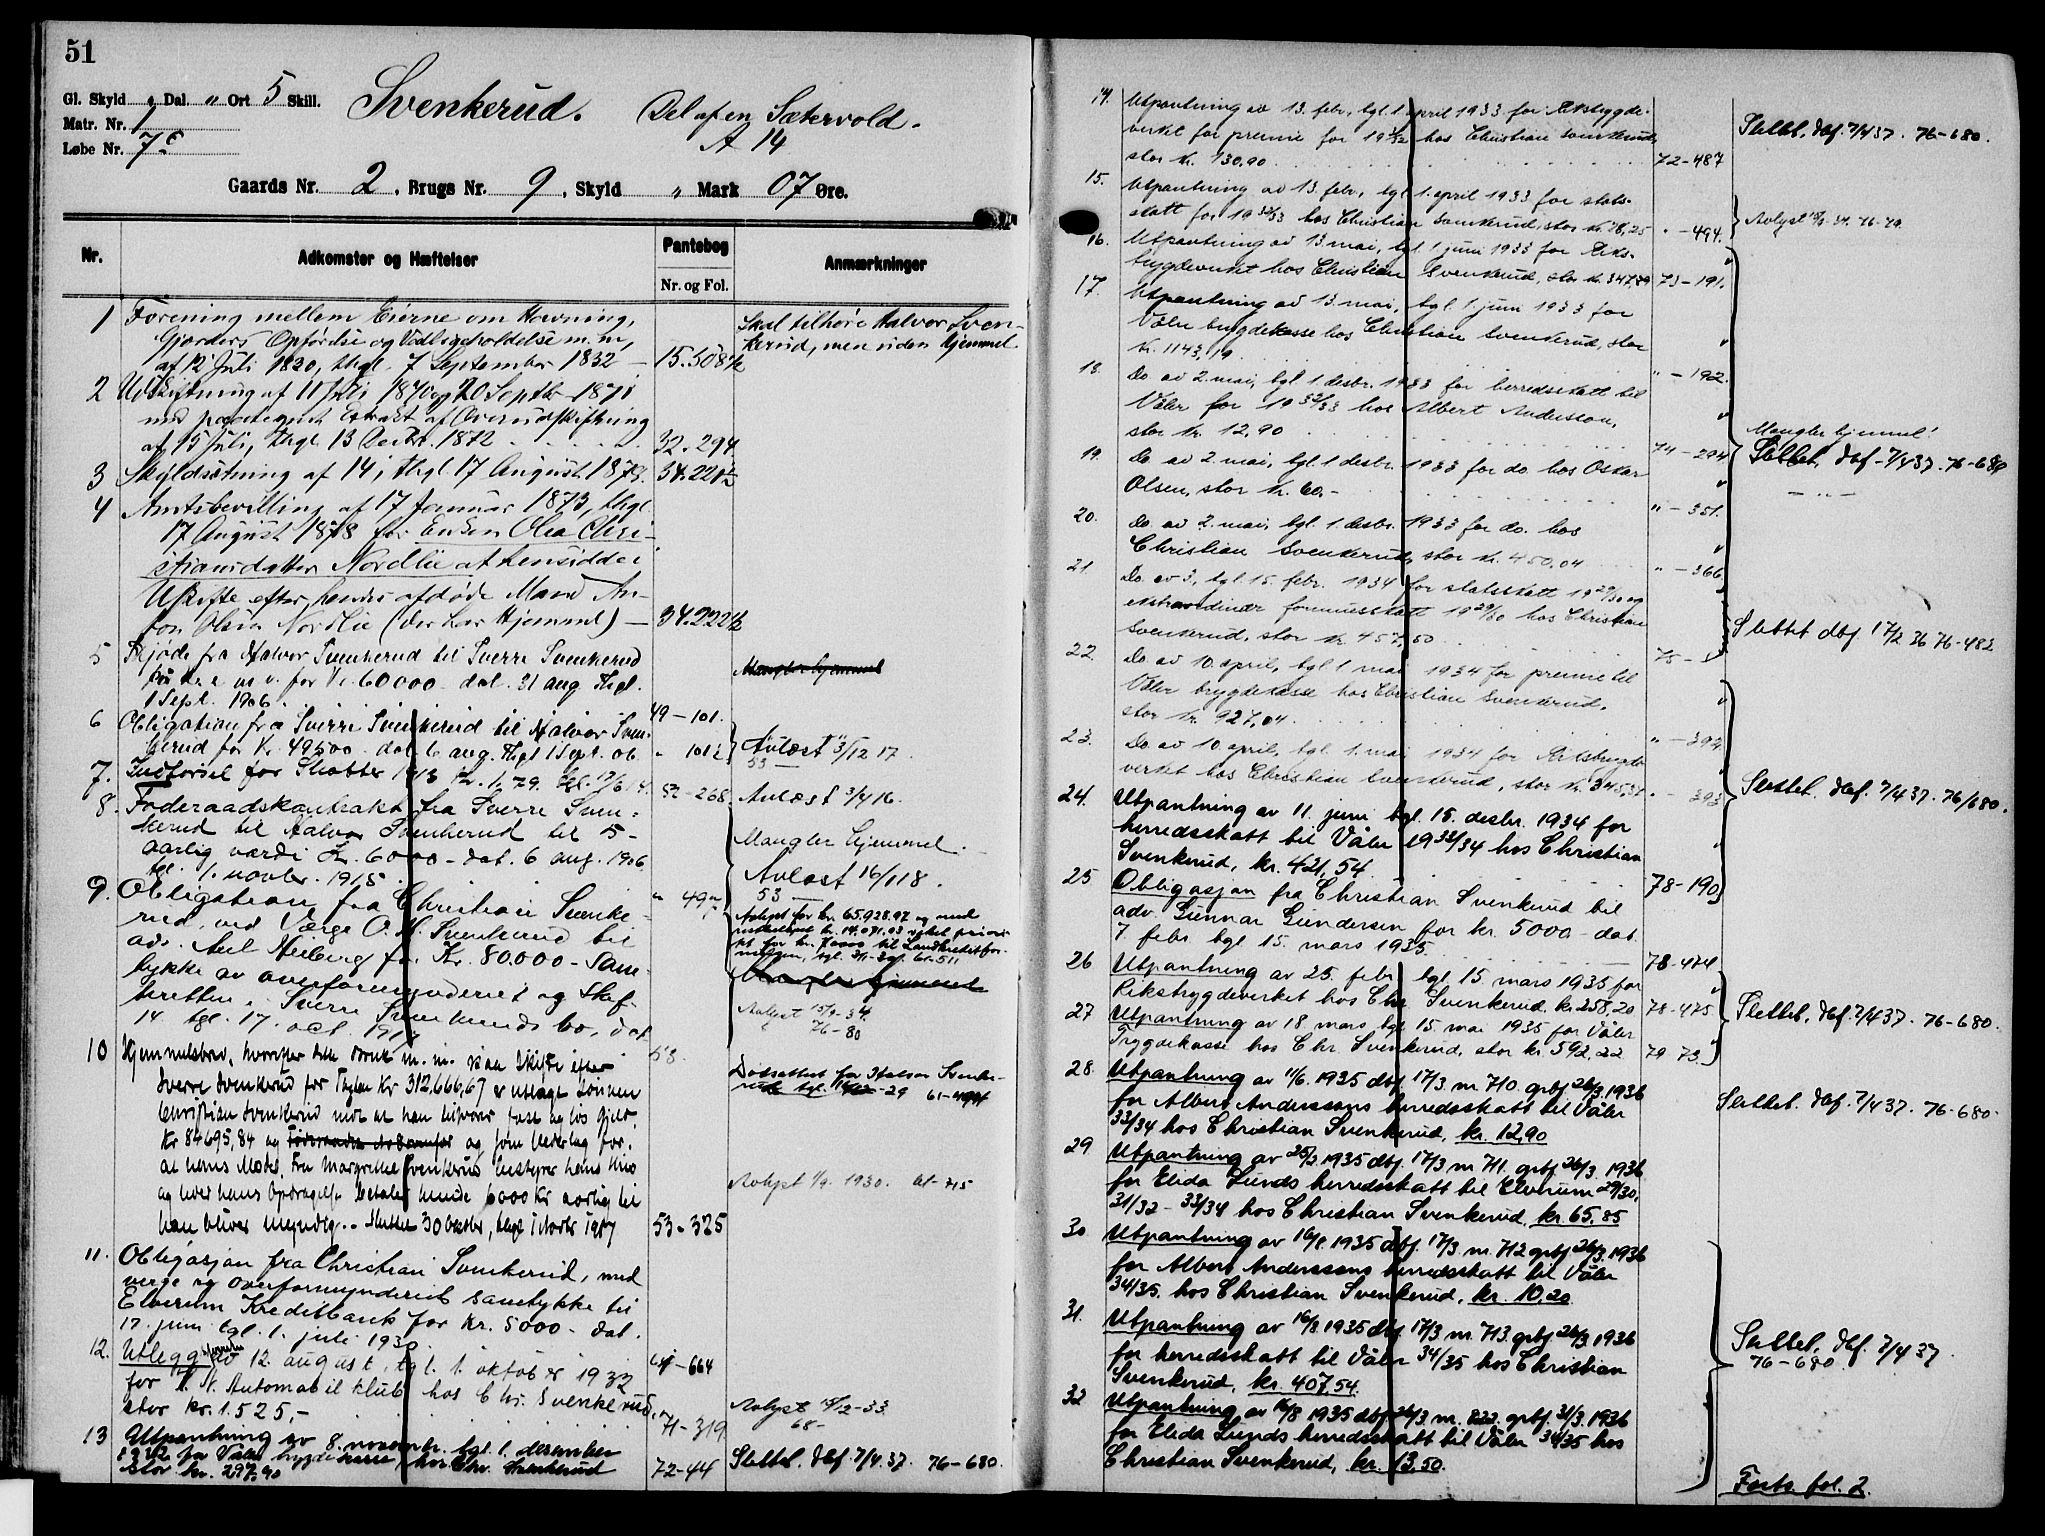 51
Gl. Skyld „ Dal. „ Ort 5 Skill.
Matr. Nr. 1
Løbe Nr. 7c
Svenkerud. Del af en Sætervold.
A 14
Gaards Nr. 2, Brugs Nr. 9, Skyld „ Mark 07 Øre.
Nr. Adkomster og Hæftelser Pantebog Anmærkninger
Nr. og Fol.
1 Forening mellem Eierne om Havning,
Gjærders Opførelse og Vedligeholdelse m. m,
af 12 Juli 1820, thgl. 7 September 1832 — 15.508½
Skal tilhøre Halvor Sven-
kerud, men uden Hjemmel
2 Udskiftning af 11 Juli 1870 og 20 Septbr 1871
med paategnet Extrakt af Overudskiftning
af 15 Juli, thgl 13 Decbr. 1872 32.294
3 Skyldsætning af 14, thgl 17 August 1873. 34.221½
4 Amtsbevilling af 17 Januar 1873, thgl.
17 August 1878 for Enken Olea Chri-
stiansdatter Nordlie at hensidde i
Uskifte efter hendes afdøde Mand An-
ton Olsen Nordlie (der har Hjemmel) — 34.222½
5 Skjøde fra Halvor Svenkerud til Sverre Svenkerud
for Kr. 60000 dat. 31 aug. thgl.
1 Sept. 1906. 49-101.
Mangler hjemmel
6 Obligation fra Sverre Svenkerud til Halvor Sven-
kerud for Kr. 49500 dat 6 aug. thgl 1 Sept. 06 „ 101½
Avlæst 3/12 17.
53 —
7. Indførsel for Skatter 1913 Kr. 1,79. tgl. 17/6 14. 52-268.
Avlæst 3/4 16.
8. Føderaadskontrakt fra Sverre Sven-
kerud til Halvor Svenkerud til 5-
aarlig værdi Kr. 6000 - dat. 6 aug. 1906,
tgl. 1. novbr. 1915. „ 49
Mangler hjemmel.
Avlæst 16/1 18.
53 —
9. Obligation fra Christian Svenke-
rud, ved Værge O. H. Svenkerud til
adv. Axel Heiberg for Kr. 80.000 - Sam-
tykke av overformynderiet og Skif-
teretten i Sverre Svenkeruds bo, dat
14 tgl. 17. oct. 1917 53.
Avlyst for kr. 65.928.97 og med
restbeløpet kr. 14.071,03 veket priori-
tet for kr. til Landkredittfor-
eningen, tgl. 61-511
Mangler hjemmel
Avlyst 15/9-34
76-80
10 Hjemmelsbrev, hvorefter dette bruk m. m. paa Skifte efter
Sverre Svenkerud for Taxten Kr 312.666,67 er utlagt Sønnen
Christian Svenkerud mot at han tilsvarer fast og løs Gjeld,
Kr 84695,84 og og som Vederlag for,
at hans Moder, Fru Margrethe Svenkerud bestyrer hans Hus
og leder hans Opdragelse betaler hende 6000 Kr aarlig til
han bliver myndig. - Sluttet 30 Oktober, thgl 1 Novbr 1917 53-325
Dødsattest for Halvor Svenke-
rud tgl. -29 61-
Avlyst 1/9. 1930. 61-715
11. Obligasjon fra Christian Svenkerud, med
verge og overformynderiets samtykke til
Elverum Kreditbank for kr. 5000 - dat.
17. juni tgl. 1. juli 1930. -664
12. Utlegg av 12. august, tgl. 1. oktober 1932
for K. N. Automobilklub hos Chr. Svenkerud,
stor kr. 1.525,- 71-319
Avlyst 15/2-33
68-
13 Utpantning av 8. novembr. tgl. 1. desember
1932 for Våler trygdekasse, hos Chr. Svenkerud
stor kr. 297,90 72-44
Slettet. dbf. 7/4.37. 76-680.
14. Utpantning av 13. febr., tgl. 1. april 1933 for Rikstrygde-
verket for premie for 1931/32 hos Christian Svenkerud,
stor kr. 130,90 72-487
Slettet. dbf. 7/4 37. 76-680.
15. Utpantning av 13. febr., tgl. 1. april 1933 for stats-
skatt for 1932/33 hos Christian Svenkerud, stor kr. 78,25 „ -494.
Avlyst 34. 76-79.
16. Utpantning av 13. mai, tgl. 1. juni 1933 for Riks-
trygdeverket hos Christian Svenkerud, stor kr. 347,89 73-191.
17. Utpantning av 13. mai, tgl. 1. juni 1933 for
Våler trygdekasse hos Christian Svenkerud, stor
kr. 1143,19 „ -192.
18. Do. av 2. mai, tgl. 1. desbr. 1933 for herredsskatt til
Våler for 1932/33 hos Albert Andersson,
stor kr. 12,90 74-294
Mangler hjemmel!
Slettet. dbf. 7/4 37. 76-680
19. Do. av 2. mai, tgl. 1 desbr. 1933 for do. hos Oskar
Olsen, stor kr. 60.- „ -351.
— „ —
20. Do. av 2. mai, tgl. 1. desbr. 1933 for do. hos
Christian Svenkerud, stor kr. 450,04 „ -366
21. Do. av 3., tgl. 15. febr. 1934 for statsskatt 1929/30 og
ekstraordinær formuesskatt 1929/30 hos Christian
Svenkerud, stor kr. 457,50 75-
Slettet dbf 17/2 36 76-482
22. Do. av 10. april, tgl. 1 mai 1934 for premie til
Våler trygdekasse hos Christian Svenkerud,
stor kr. 927,04. „ -392.
23. Do. av 10. april, tgl. 1. mai 1934 for Rikstrygde-
verket hos Christian Svenkerud, stor kr. 345,31 „ -393
Slettet. dbf. 7/4 37. 76/680.
24. Utpantning av 11. juni tgl. 15. desbr. 1934 for
herredsskatt til Våler 1933/34 hos Christian
Svenkerud, kr. 421,54 78-190
25 Obligasjon fra Christian Svenkerud til
adv. Gunnar Gundersen for kr. 5000 - dat.
7. febr. tgl. 15. mars 1935. 78-474
26 Utpantning av 25. febr., tgl. 15. mars 1935 for
Rikstrygdeverket hos Chr. Svenkerud, kr. 258,20 78-475
27 Utpantning av 18. mars tgl. 15. mai 1935 for Våler
Trygdekasse hos Chr. Svenkerud, stor kr. 592,22 79-73
Slettet. dbf. 7/4 37. 76-680.
28. Utpantning av 11/6. 1935 dbf. 17/3. nr. 710. grbf. 26/3. 1936
for Albert Anderssons herredsskatt til Våler
33/34 hos Christian Svenkerud, kr. 12,90
Slettet. dbf. 7/4 37. 76-680.
29 Utpantning av 25/2 1935 dbf. 17/3 nr 711. grbf. 26/3. 1936
for Elida Lunds herredsskatt til Elverum 29/30,
31/32 - 33/34 hos Christian Svenkerud, kr. 65,85
30 Utpantning av 16/8. 1935 dbf. 17/3. nr. 712 grbf. 26/3. 1936
for Albert Anderssons herredsskatt til Våler
34/35. hos Christian Svenkerud, kr. 10,20
31. Utpantning av 16/8 1935 dbf 17/3 nr. 713. grbf. 26/3. 1936
for herredsskatt til Våler 34/35 hos Christian
Svenkerud, kr. 407,54.
Slettet. dbf. 7/4 37.
76-680.
32 Utpantning av 16/8 1935 dbf. 26/3. nr. 822. grbf. 31/3. 1936
for Elida Lunds herredsskatt til Våler 34/35 hos
Christian Svenkerud, kr. 13,50.
Forts. fol. 2.